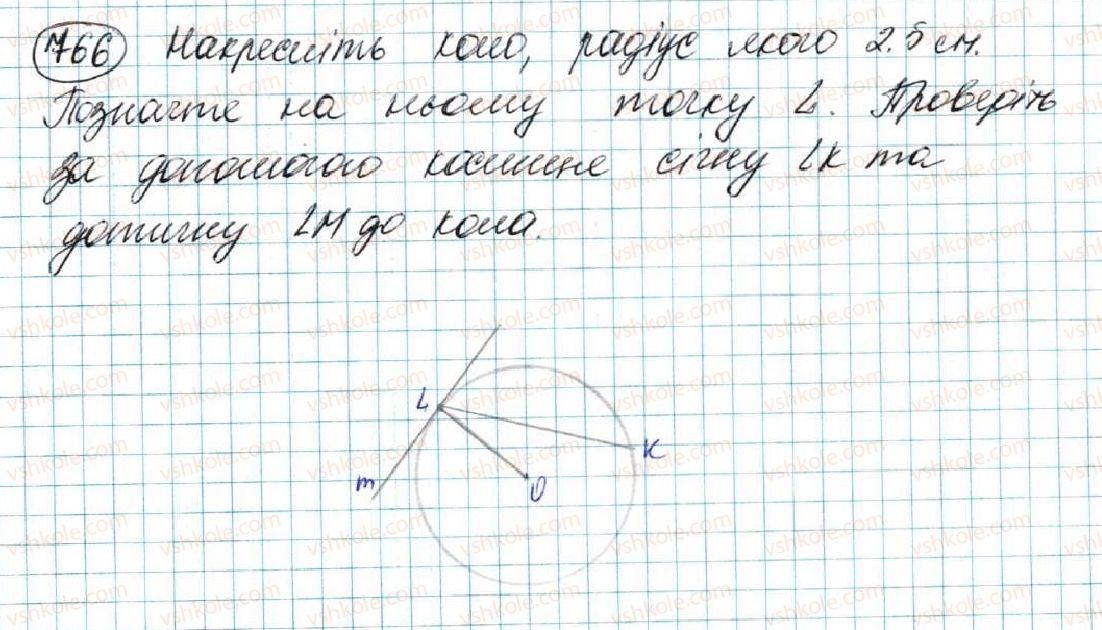 766 Накресліть коло, радіус якого 2.5 см.
Позначте на ньому точку L. Проведіть
за допомогою косинце січну LK та
дотичну LM до кола.
L
K
m
O
vshkole.com